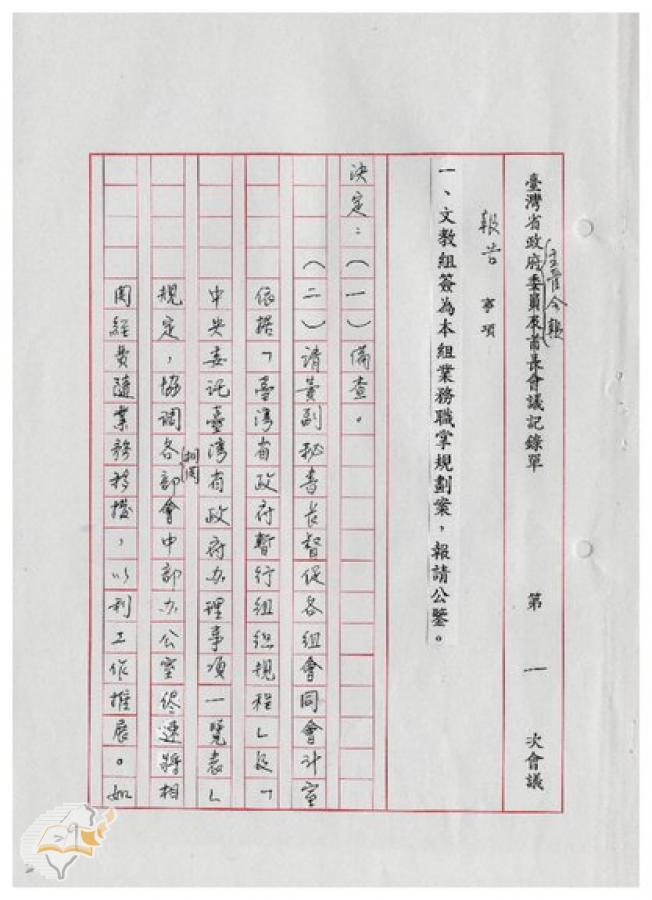 臺灣省政府委員及首長會議記錄單 第一次會議
主管会報
報告事項
一、文教組簽為本組業務職掌規劃案，報請公鑒。
決定：(一)備查。
(二)請黃副秘書長督促各組會同會計室
依據「臺灣省政府暫行組織規程」及「
中央委託臺灣省政府办理事項一覽表」
規定，協調各部會中部办公室儘速將相
相関
関經費隨業務移撥，以利工作推展。如
29